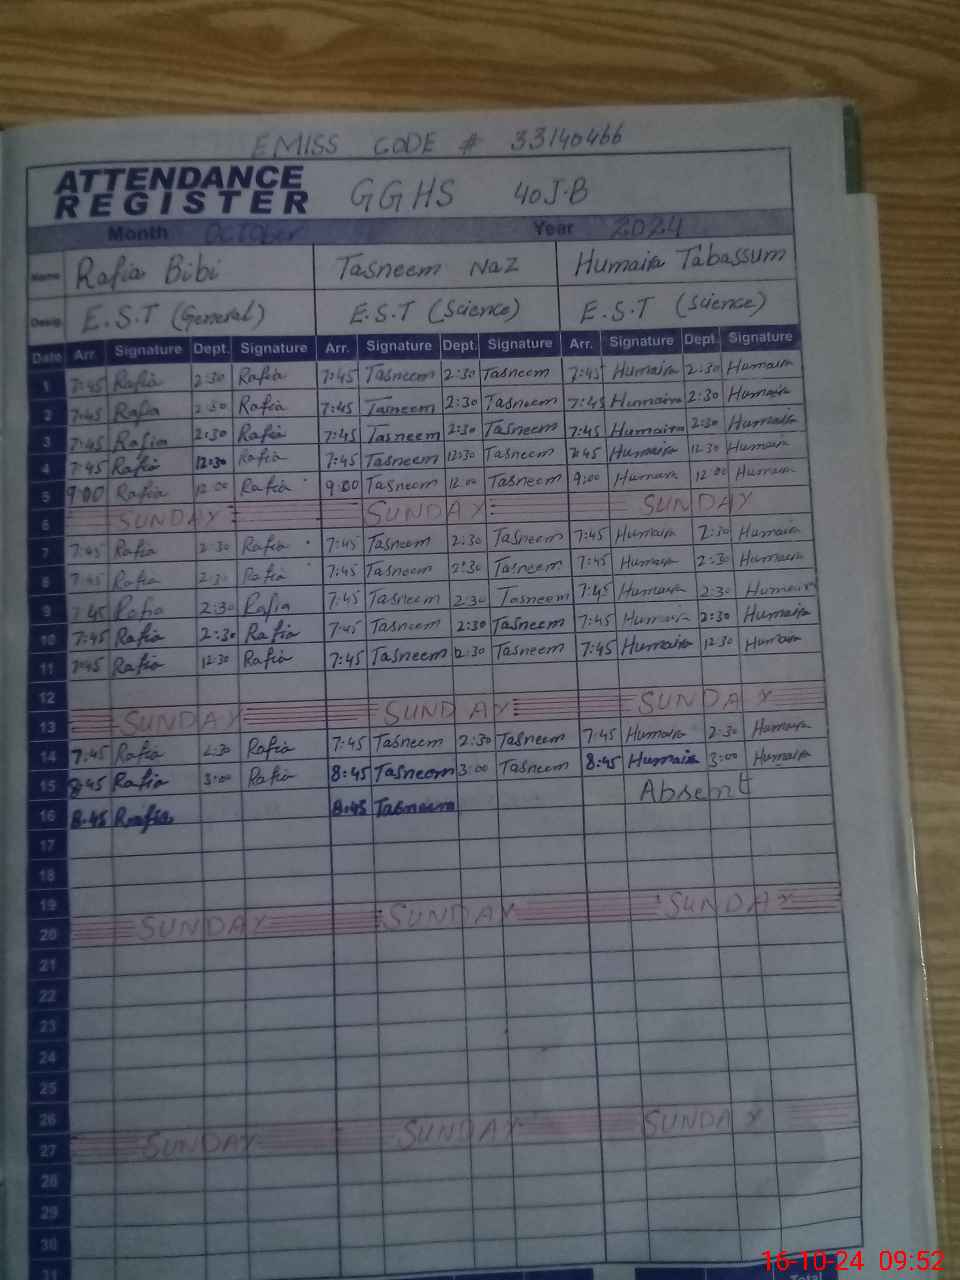 EMISS CODE # 33140466
ATTENDANCE REGISTER GGHS 40J.B
Month OCTOBER Year 2024
Name Rafia Bibi Tasneem Naz Humaira Tabassum
Desig. E.S.T (General) E.S.T (Science) E.S.T (Science)
Date Arr. Signature Dept. Signature Arr. Signature Dept. Signature Arr. Signature Dept. Signature
1 7:45 Rafia 2:30 Rafia 7:45 Tasneem 2:30 Tasneem 7:45 Humaira 2:30 Humaira
2 7:45 Rafia 2:30 Rafia 7:45 Tasneem 2:30 Tasneem 7:45 Humaira 2:30 Humaira
3 7:45 Rafia 2:30 Rafia 7:45 Tasneem 2:30 Tasneem 7:45 Humaira 2:30 Humaira
4 7:45 Rafia 12:30 Rafia 7:45 Tasneem 12:30 Tasneem 7:45 Humaira 12:30 Humaira
5 9:00 Rafia 12:00 Rafia 9:00 Tasneem 12:00 Tasneem 9:00 Humaira 12:00 Humaira
6 SUNDAY SUNDAY SUNDAY
7 7:45 Rafia 2:30 Rafia 7:45 Tasneem 2:30 Tasneem 7:45 Humaira 2:30 Humaira
8 7:45 Rafia 2:30 Rafia 7:45 Tasneem 2:30 Tasneem 7:45 Humaira 2:30 Humaira
9 7:45 Rafia 2:30 Rafia 7:45 Tasneem 2:30 Tasneem 7:45 Humaira 2:30 Humaira
10 7:45 Rafia 2:30 Rafia 7:45 Tasneem 2:30 Tasneem 7:45 Humaira 2:30 Humaira
11 7:45 Rafia 12:30 Rafia 7:45 Tasneem 12:30 Tasneem 7:45 Humaira 12:30 Humaira
12
13 SUNDAY SUNDAY SUNDAY
14 7:45 Rafia 2:30 Rafia 7:45 Tasneem 2:30 Tasneem 7:45 Humaira 2:30 Humaira
15 8:45 Rafia 3:00 Rafia 8:45 Tasneem 3:00 Tasneem 8:45 Humaira 3:00 Humaira
16 8:45 Rafia 8:45 Tasneem Absent
17
18
19
20 SUNDAY SUNDAY SUNDAY
21
22
23
24
25
26
27 SUNDAY SUNDAY SUNDAY
28
29
30
31 Total
16-10-24 09:52